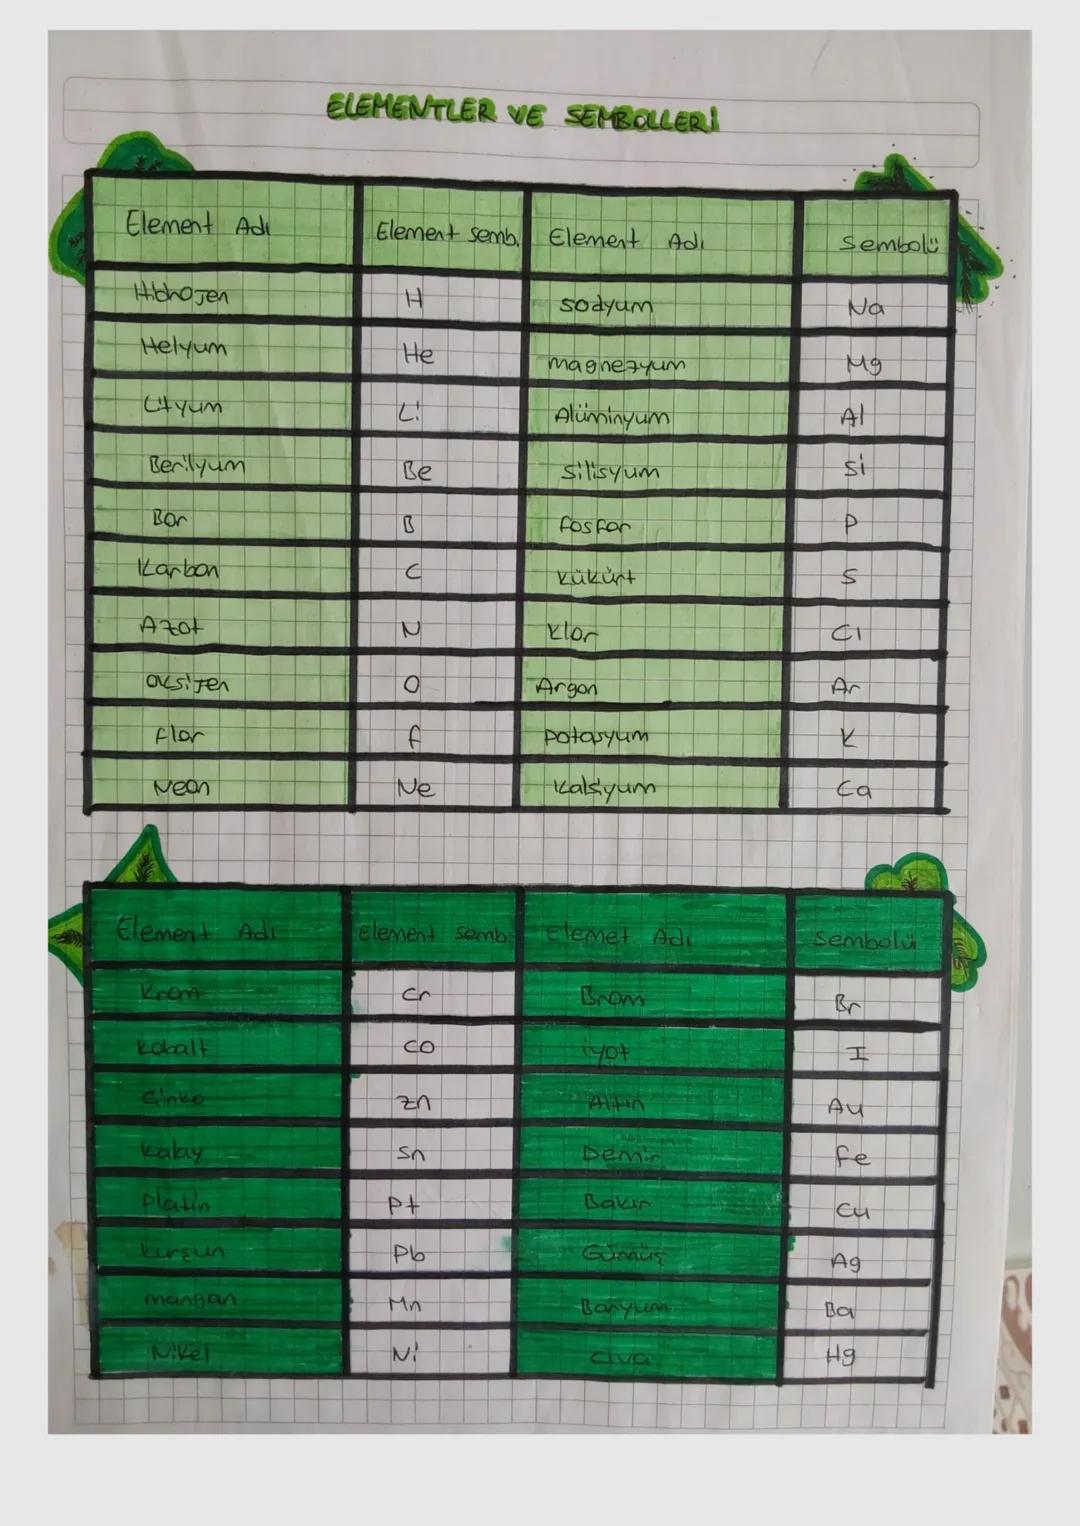 ELEMENTLER VE SEMBOLLERİ
Element Adı Element semb. Element Adı Sembolü
Hidrojen H sodyum Na
Helyum He magnezyum Mg
Lityum Li Alüminyum Al
Berilyum Be silisyum si
Bor B fosfor P
Karbon C kükürt S
Azot N klor Cl
oksijen O Argon Ar
flor f potasyum K
Neon Ne Kalsiyum Ca
Element Adı Element semb. Elemet Adı Sembolü
Krom Cr Brom Br
kobalt CO iyot I
Çinko Zn Altın Au
kalay Sn Demir fe
platin Pt Bakır Cu
kurşun Pb Gümüş Ag
mangan Mn Baryum Ba
Nikel Ni civa Hg